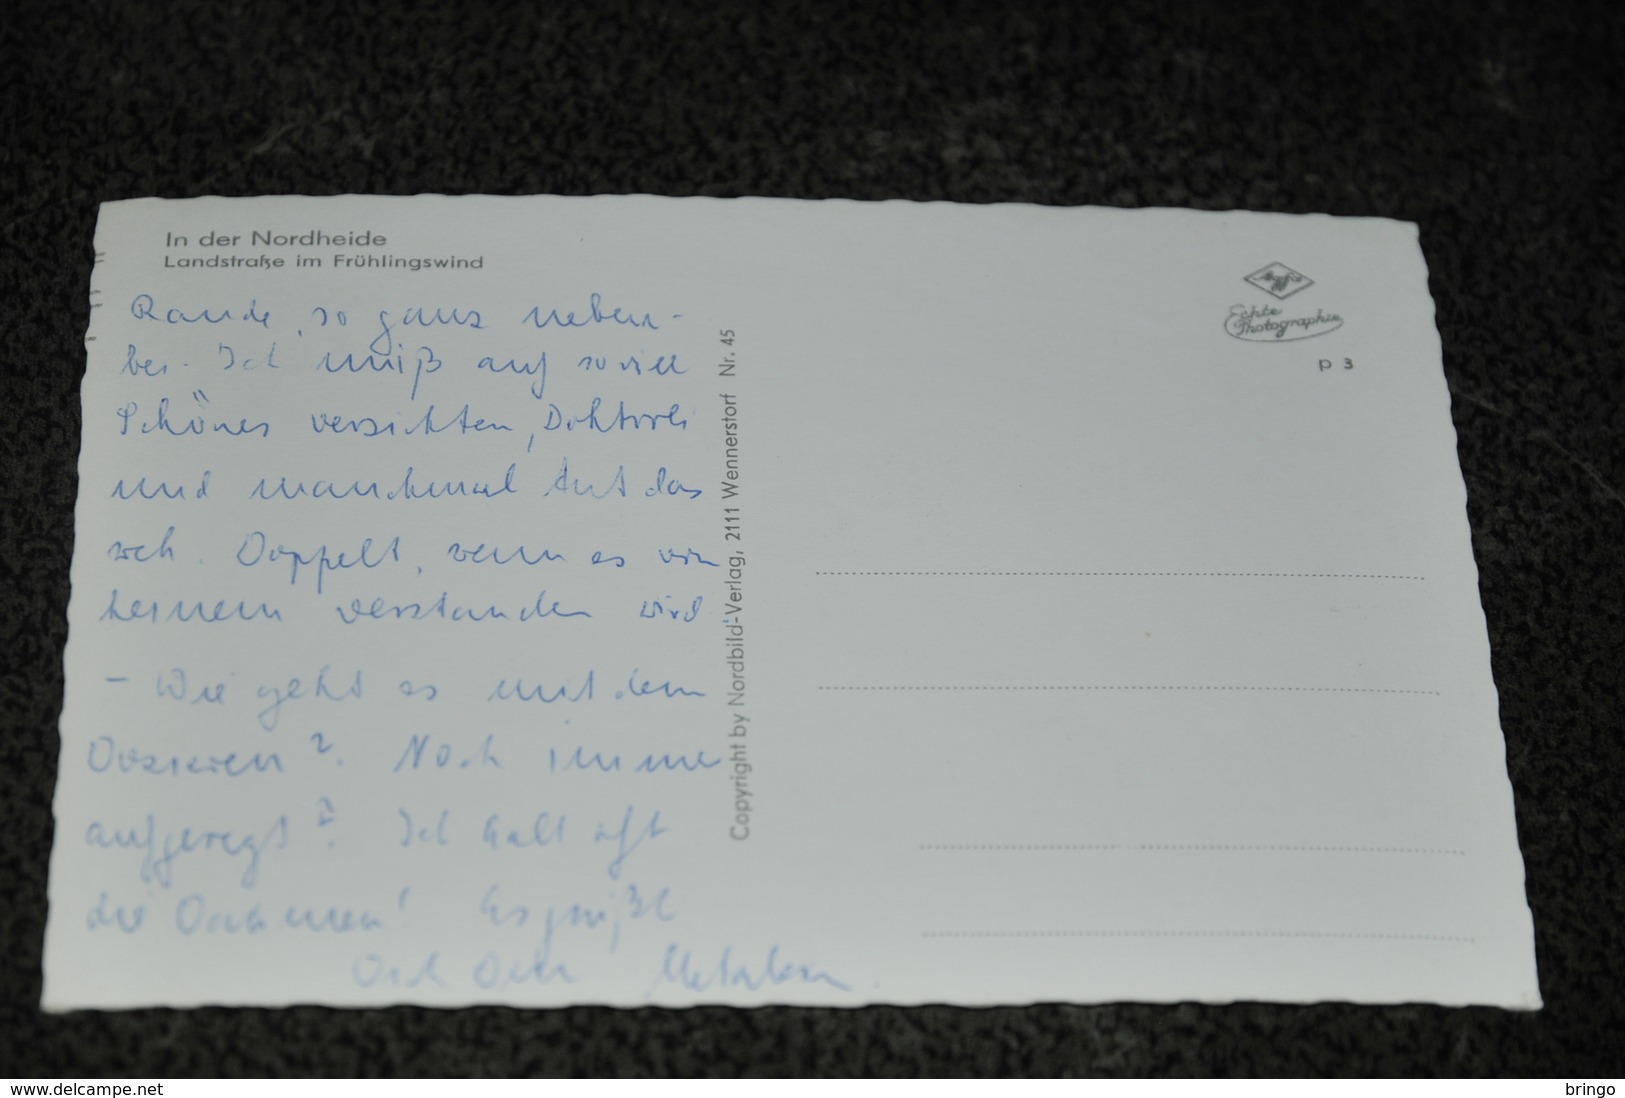 In der Nordheide
Landstraße im Frühlingswind
Rande, so ganz neben-
bei. Ich muß auf soviel
Schönes verzichten, Doktorli
und manchmal tut das
weh. Doppelt, wenn es von
keinem verstanden wird
- Wie geht es mit dem
Dozieren? Noch immer
aufgeregt? Ich halt oft
die Daumen! Es grüßt
Dich Dein
Copyright by Nordbild-Verlag, 2111 Wennerstorf Nr. 45
Echte
Photographie
P 3
www.delcampe.net
bringo